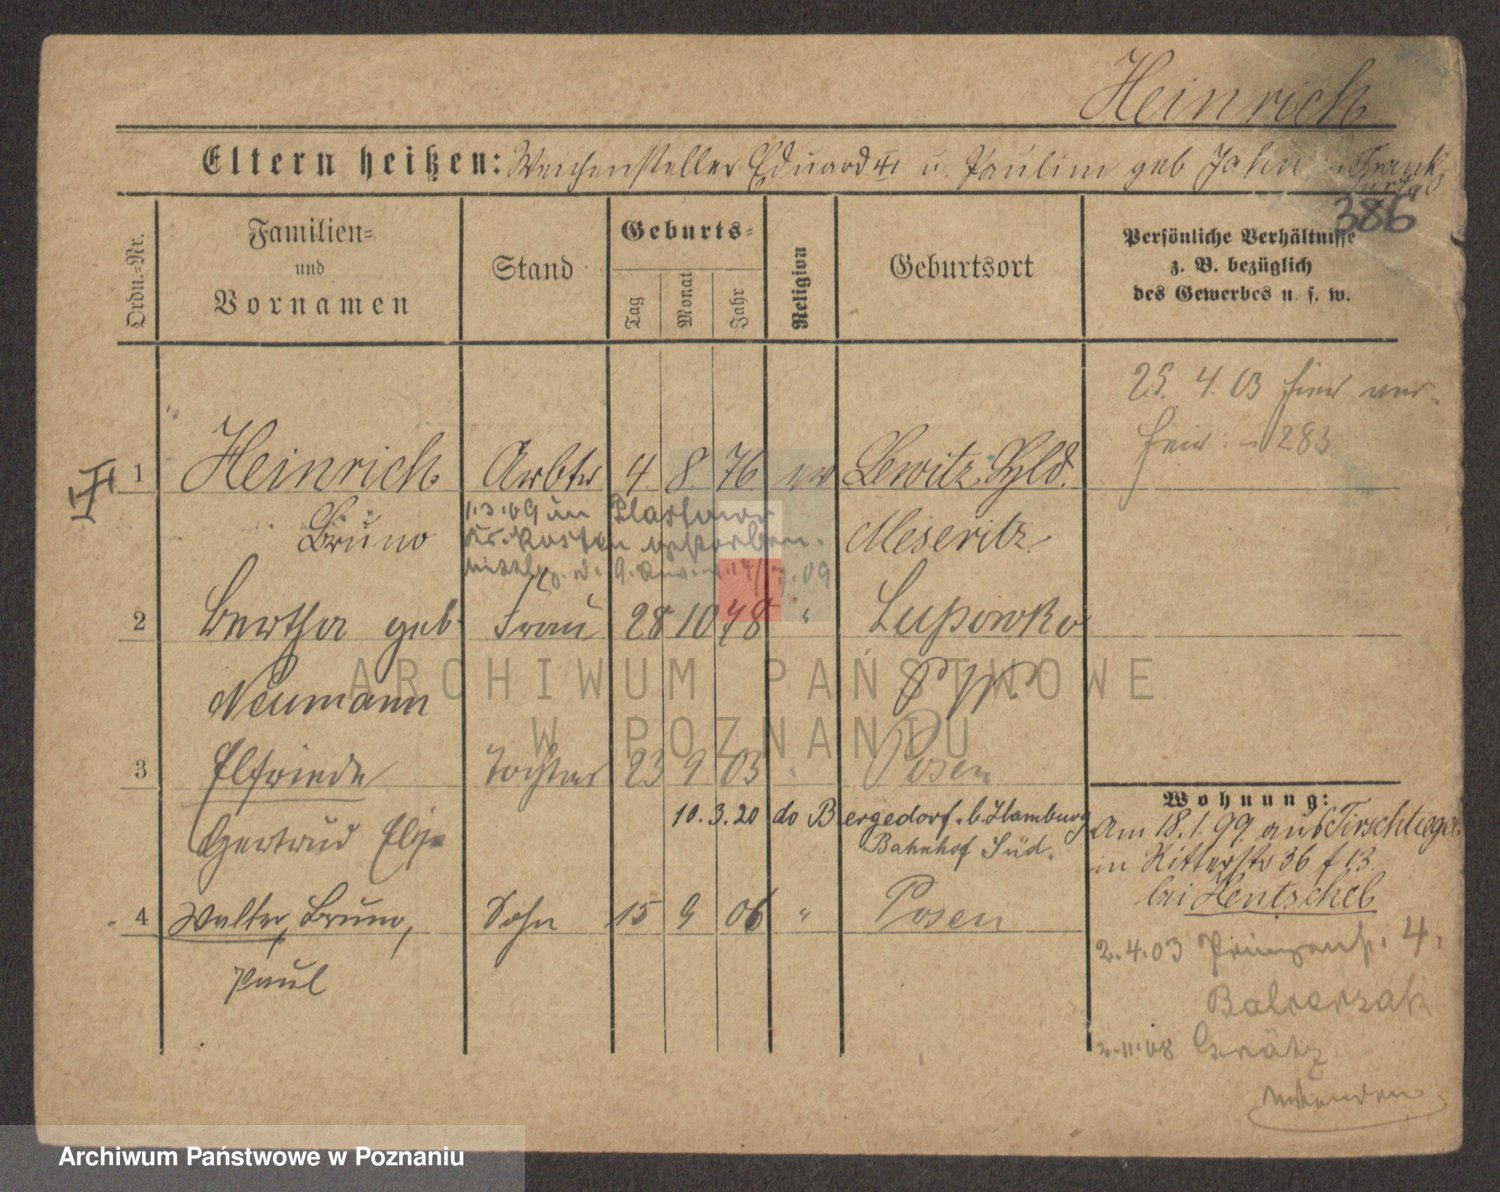 Heinrich
Eltern heißen: Weichensteller Eduard u. Pauline geb Jahn
386
Ordn.-Nr.
Familien-
und
Vornamen
Stand
Geburts-
Tag
Monat
Jahr
Religion
Geburtsort
Persönliche Verhältnisse
z. B. bezüglich
des Gewerbes u. s. w.
25. 4. 03 hier ver-
heir. 283
1 Heinrich Arbtr 4 8 76 ev Lewitz Hld.
Bruno
Meseritz
1.3.09 in
Kr. Kosten gestorben.
2 Bertha geb. Frau 28 10 78 " Lupowko
Neumann
3 Elfriede Tochter 23 9 03 " Posen
Gertrud Else
10. 3. 20 do Bergedorf b. Hamburg
Bahnhof Süd.
4 Walter, Bruno, Sohn 15 9 06 " Posen
Paul
Wohnung:
Am 18.1.99 aus Tirschtiegel
in Ritterstr 36 f 13
bei Hentschel
2.4.03 4.
Balcerzak
2.11.08 Grätz
ARCHIWUM PAŃSTWOWE
W POZNANIU
Archiwum Państwowe w Poznaniu